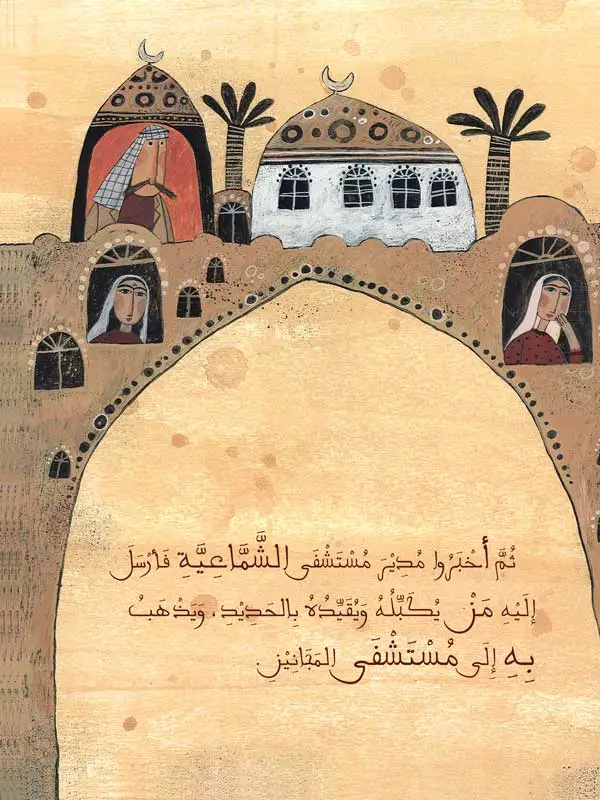 ثُمَّ أَخْبَرُوا مُدِيْرَ مُسْتَشْفَى الشَّمَّاعِيَّةِ فَأَرْسَلَ
إِلَيْهِ مَنْ يُكَبِّلُهُ وَيُقَيِّدُهُ بِالحَدِيْدِ، وَيَذْهَبُ
بِهِ إِلَى مُسْتَشْفَى المَجَانِيْنِ.